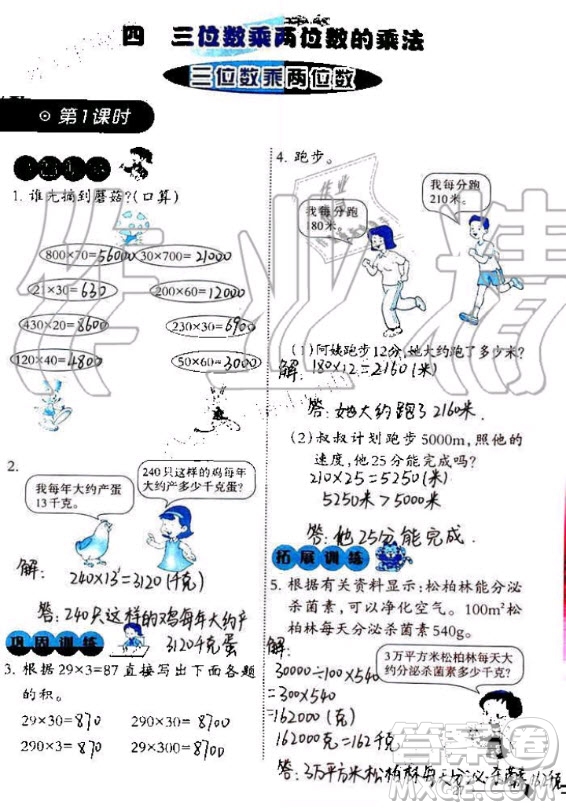 四 三位数乘两位数的乘法
三位数乘两位数
第1课时
1. 谁先摘到蘑菇?(口算)
800×70=56000 30×700=21000
21×30=630 200×60=12000
430×20=8600 230×30=6900
120×40=4800 50×60=3000
2.
我每年大约产蛋
13千克。
240只这样的鸡每年
大约产多少千克蛋?
解:
240×13=3120(千克)
答:240只这样的鸡每年大约产
3120千克蛋
巩固训练
3. 根据29×3=87直接写出下面各题
的积。
29×30=870 290×3=870
290×30=8700 29×300=8700
4. 跑步。
我每分跑
180米。
我每分跑
210米。
(1)阿姨跑步12分,她大约跑了多少米?
解: 180×12=2160(米)
答:她大约跑了2160米.
(2)叔叔计划跑步5000m,照他的
速度,他25分能完成吗?
210×25=5250(米)
5250米>5000米
答:他25分能完成.
拓展训练
5. 根据有关资料显示:松柏林能分泌
杀菌素,可以净化空气。100m²松
柏林每天分泌杀菌素540g。
3万平方米松柏林每天大
约分泌杀菌素多少千克?
解:
30000÷100×540
=300×540
=162000(克)
162000克=162千克
答:3万平方米松柏林每天分泌杀菌素162千克
作业精
答案圈